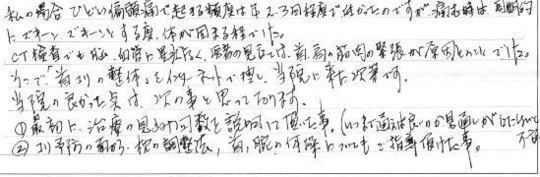 私の場合 ひどい偏頭痛で起きる頻度は年2、3回程度で少なかったのですが、痛む時は 周期的
にズキーン ズキーンとする度、体が固まる程でした。
CT検査でも脳、血管に異常なく、医者の見立ては、首、肩の筋肉の緊張が原因とのことでした。
そこで「首コリの整体」をインターネットで探し、当院に来た次第です。
当院の良かった点は、次の事と思っております。
①最初に、治療の見込み回数を説明して頂いた事。(いつまで通えば良いのか見通しが
②コリ予防の面から、枕の調整法、首、腕の体操についてもご指導頂けた事。